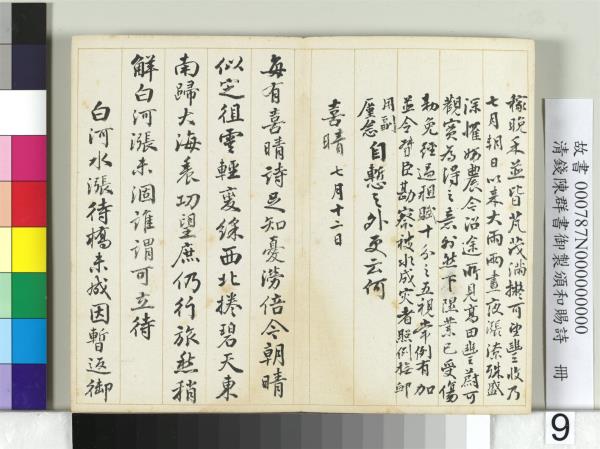 稼晚禾並皆芃茂滿擬可望豐收乃
七月朔日以來大雨兩晝夜漲潦殊盛
深惟妨農今沿途所見高田豐蔚可
觀實為得之意外然下隰業已受傷
勅免經過租賦十分之五視常例有加
並令督臣勘察被水成災者照例撫卹
用副
廑念自慙之外更云何
喜晴 七月十二日
每有喜晴詩足知憂澇倍今朝晴
似定徂雲輕變綵西北捲碧天東
南歸大海表功望庶仍行旅愁稍
解白河漲未涸誰謂可立待
白河水漲待橋未成因暫返御
故書 000787N000000000
清錢陳群書御製頒和賜詩 冊
9